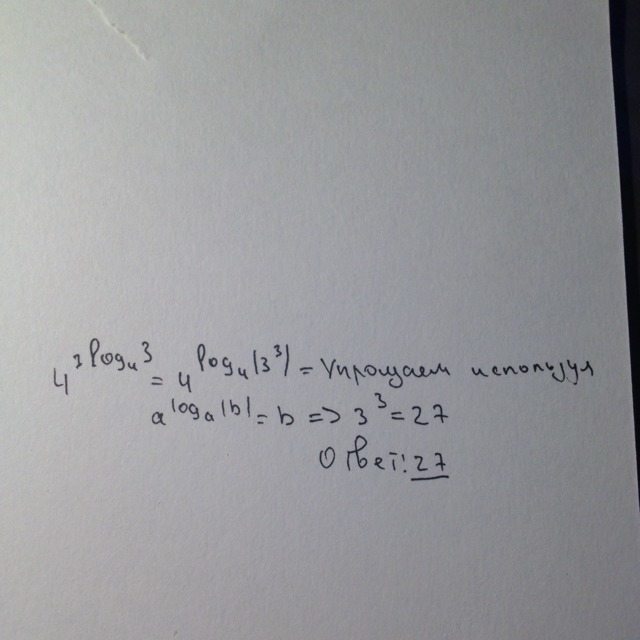 4^3log₄3 = 4^log₄(3^3) = Упрощаем используя
a^logₐ(b) = b => 3^3 = 27
Ответ: 27